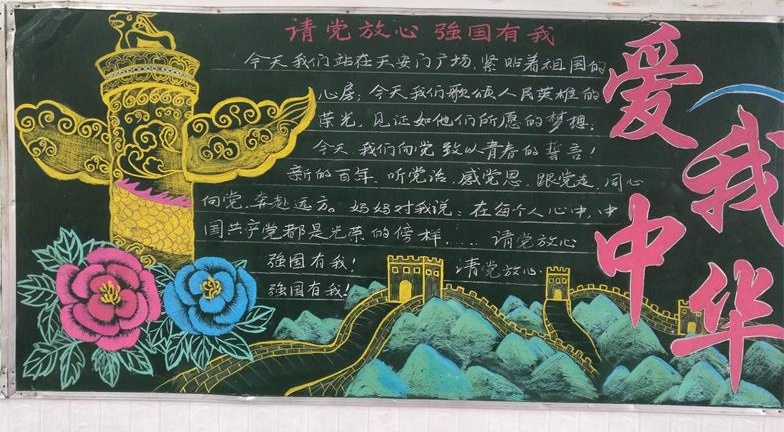 请党放心 强国有我
今天我们站在天安门广场,紧贴着祖国的
心房;今天我们歌颂人民英雄的
荣光,见证如他们所愿的梦想。
今天,我们向党致以青春的誓言!
新的百年,听党话,感党恩,跟党走,同心
向党,奔赴远方。妈妈对我说:在每个人心中,中
国共产党都是光荣的榜样……请党放心
强国有我! 请党放心
强国有我!
爱我
中华